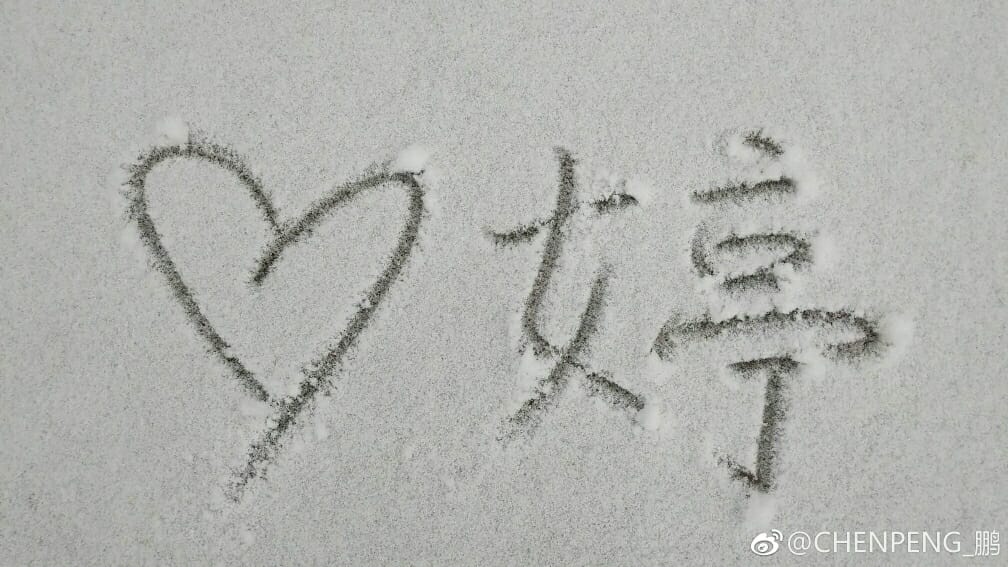 ♡婷
@CHENPENG_鹏